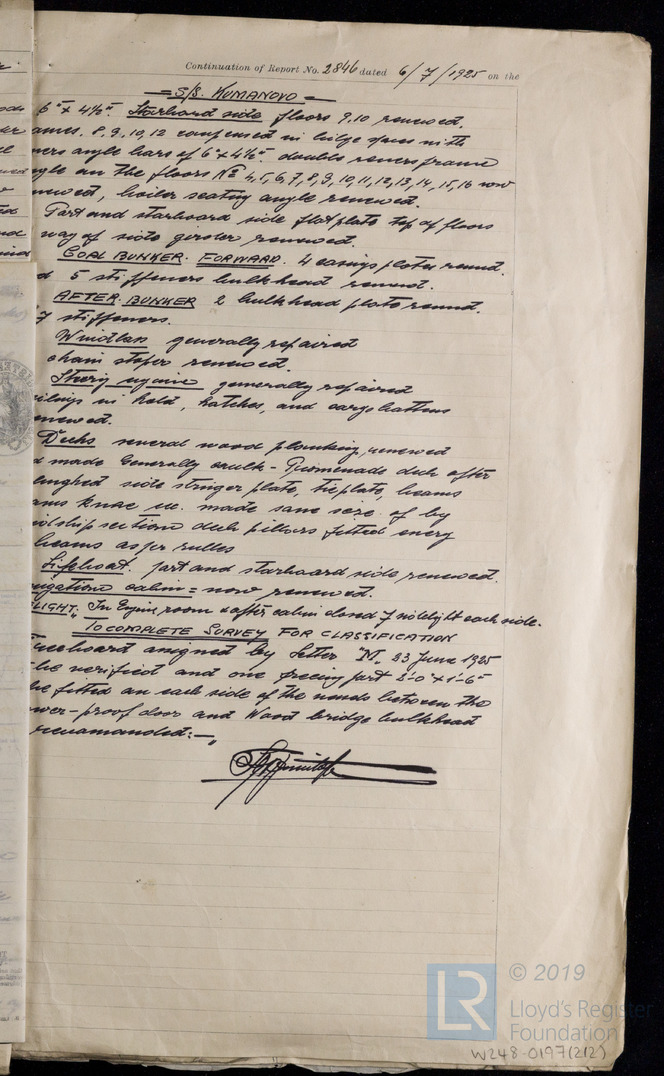 Continuation of Report No. 2846 dated 6/7/1925 on the
= S/S. KUMANOVO =
6" x 4½". Starboard side floors 9.10 renewed.
ames. 8, 9, 10, 12 compensed in bilge spaces with
vers angle bars of 6" x 4½". double revers frame
gle on the floors Nº 4, 5, 6, 7, 8, 9, 10, 11, 12, 13, 14, 15, 16 now
newed, boiler seating angle renewed.
Port and starboard side flat plate top of floors
way of side girder renewed.
COAL BUNKER. FORWARD. 4 casings plates renewd.
d 5 stiffeners bulkhead renewd.
AFTER. BUNKER 2 bulkhead plate renewd.
7 stiffeners.
Windlass generally repaired
chain stoper renewed.
generally repaired
ilings in hold, hatches, and cargo battens
enewed.
Decks several wood planking, renewed
d made Generally caulk - Promenade deck after
side stringer plate, tieplate, beams
ams knae made same size of by
idship section deck pillars fitted every
beams as per rulles
Lifeboat. port and starboard side renewed.
igation cabin = now renewed.
LIGHT. In Engin, room & after cabin closed 7 sidelight each side.
TO COMPLETE SURVEY FOR CLASSIFICATION
reeboard assigned by Letter "M" 23 June 1925
be verified and one freeing port 2'-0" x 1'-6"
be fitted on each side of the between the
wer-proof door and Wood bridge bulkhead
recumanded:-"
LR
© 2019
Lloyd's Register
Foundation
W248-0197(2/2)